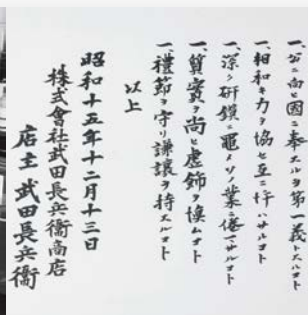 一、公ニ向ヒ國ニ奉スルヲ第一義トスルコト
一、相和キ力ヲ協セ互ニ忤ハサルコト
一、深ク研鑽ニ竭メソノ業ニ倦マサルコト
一、質實ヲ尚ヒ虚飾ヲ慎ムコト
一、禮節ヲ守リ謙譲ヲ持スルコト
以上
昭和十五年十二月十三日
株式會社武田長兵衞商店
店主 武田長兵衞